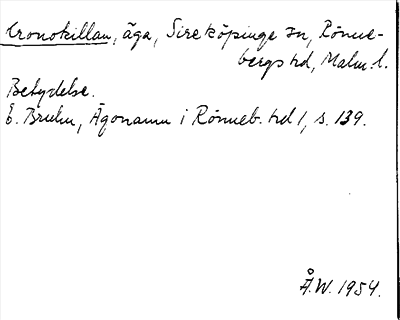 Kronokillan, äga, Sireköpinge sn, Rönne-
bergs hd, Malm. l.
Betydelse.
E. Bruhn, Ägonamn i Rönneb. hd 1, s. 139.
Å.W. 1954.